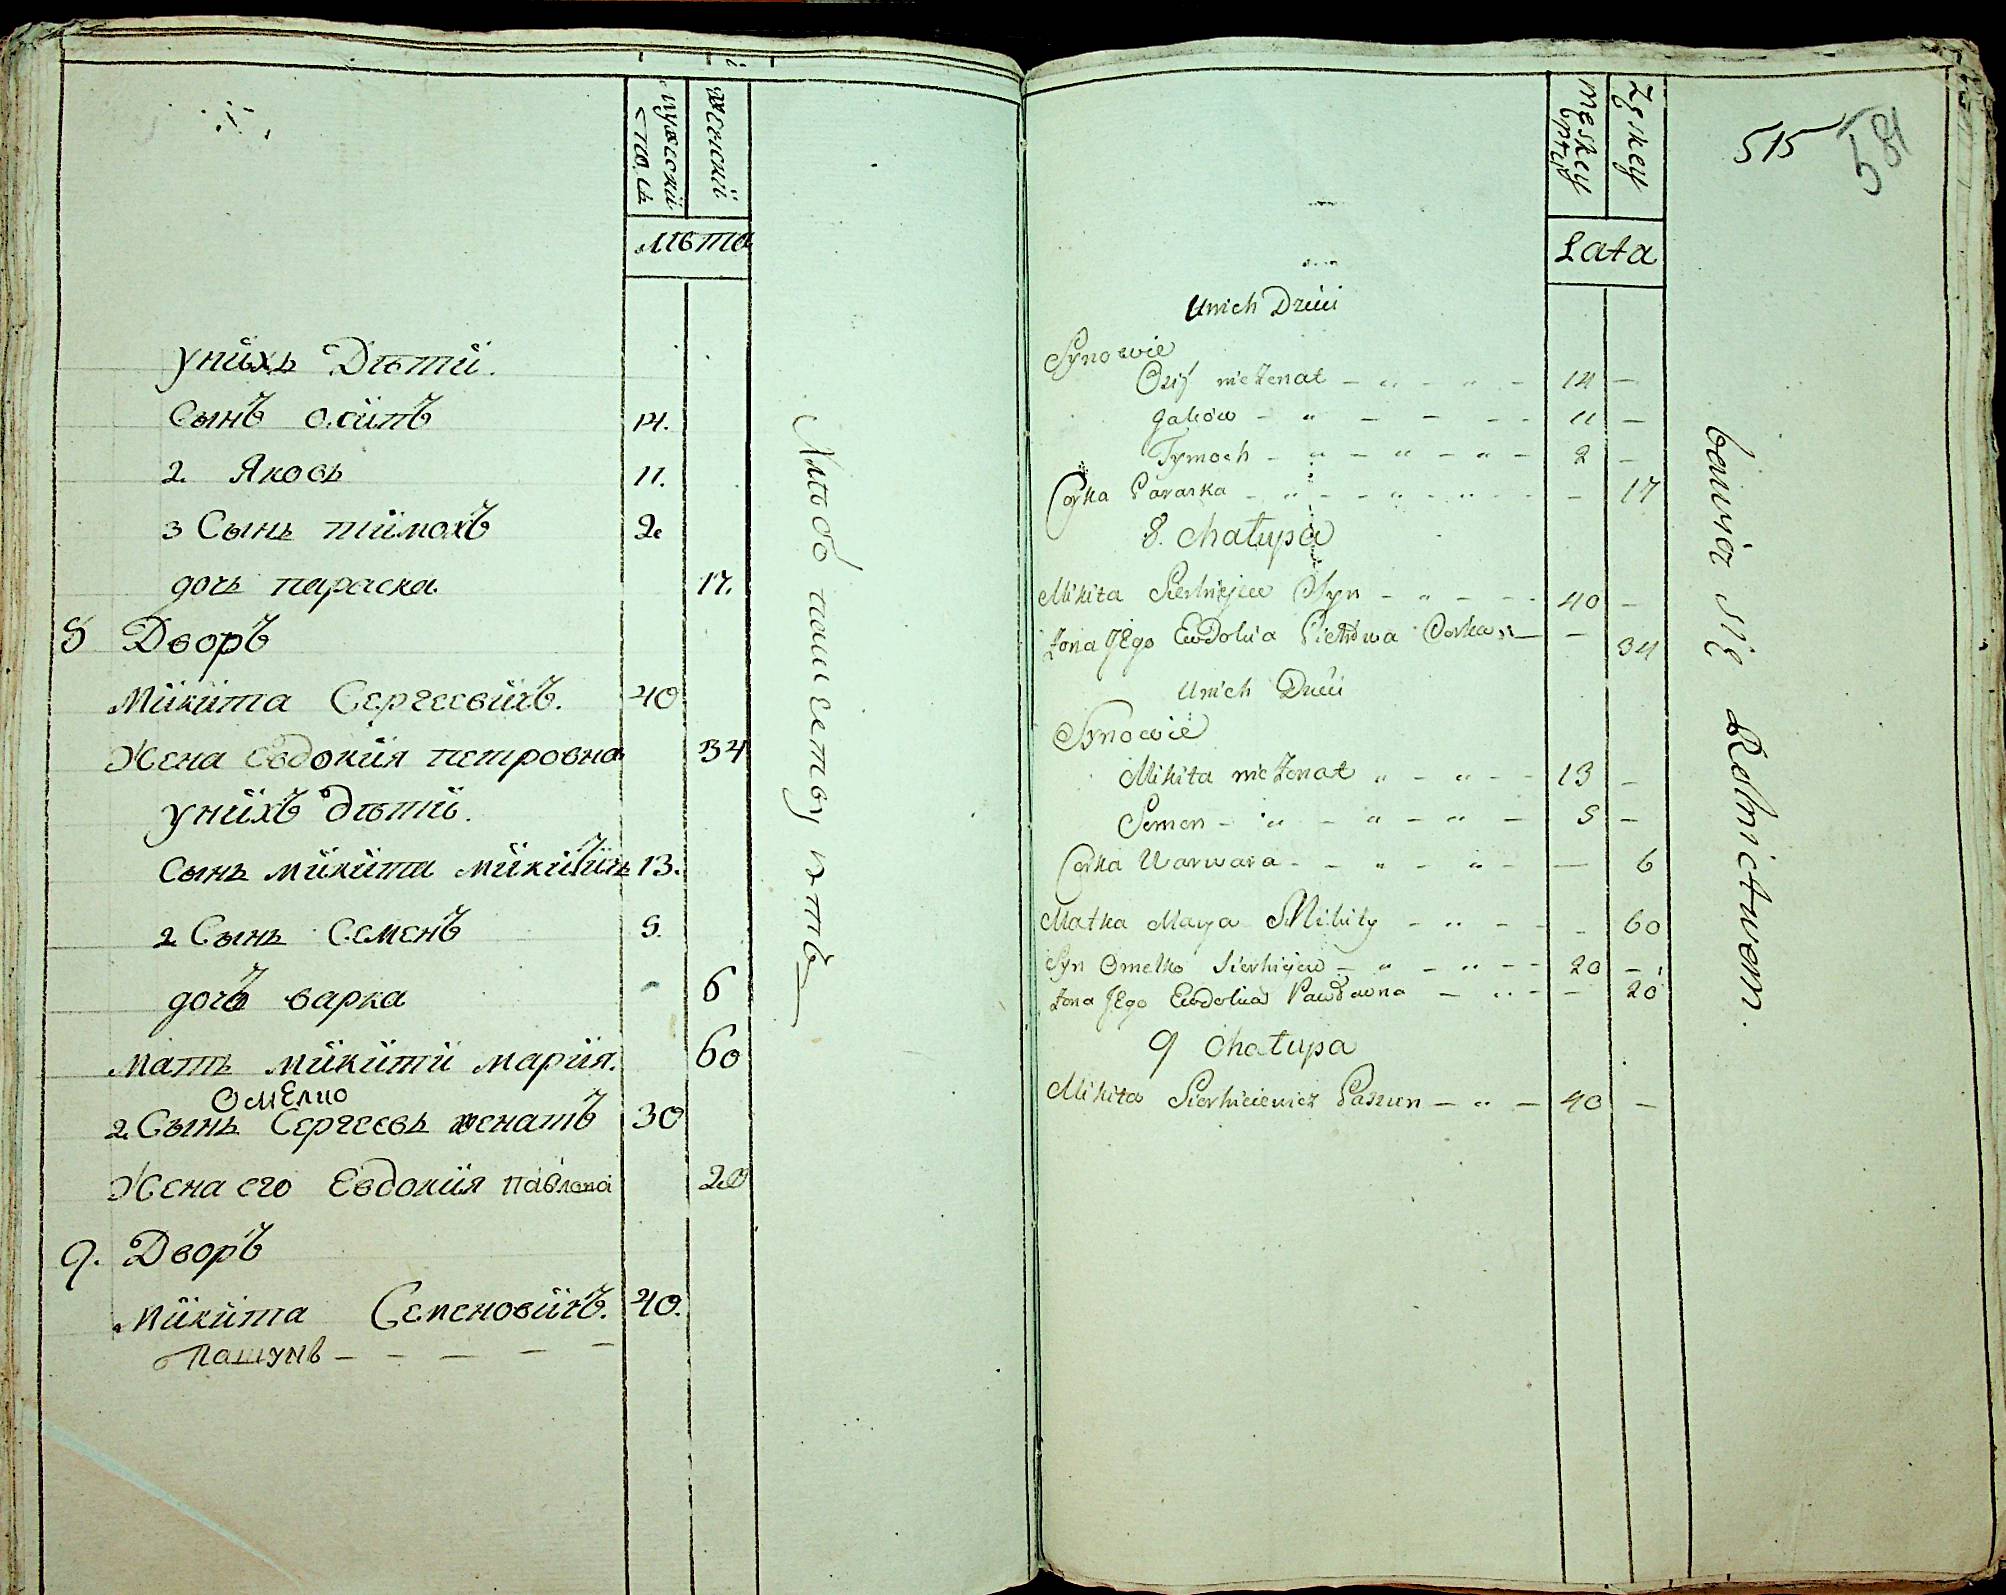 мужескій
женскій
лѣта
унихъ Дѣти.
Сынъ осипъ 14.
2. Яковъ 11.
3 Сынъ тимохъ 2.
дочь параска. 17.
8 Дворъ
Микита Сергеевичъ. 40
Жена Евдокия петровна 34
унихъ дѣти.
Сынъ микита 13.
2 Сынъ Семенъ 5.
дочъ варка - 6
мать микити мария. 60
Омелко
2. Сынъ Сергеевъ женатъ 30
Жена его Евдокия павловна 20
9. Дворъ
Микита Семеновичъ. 40.
Пашунъ - - - - -
515
581
Męskey
Zęskey
Lata
Unich Dzieci
Synowie
nieżenat - " - " - 14 -
Jakow - " - - - - 11 -
Tymoch - " - " - " - 2 -
Corka Paraska - " - - " - " - - - 17
8. Chałupa
Mikita Sierhiejew Syn - " - - - 40 -
Żona JEgo Eudokia Pietrowa Corka " - - 34
Unich Dzieci
Synowie
Mikita nieżenat " - " - - 13 -
Semen - " - " - " - 5 -
Corka Warwara - - " - " - - 6
Matka Marya Mikity - " - - - 60
Syn Omelko Sierhiejew - " - " - - 20 -
Żona JEgo Eudokia Pawłowna - " - - 20
9 Chałupa
Mikita Sierhieiewicz Paszun - " - 40 -
bawia się Rolnictwem.